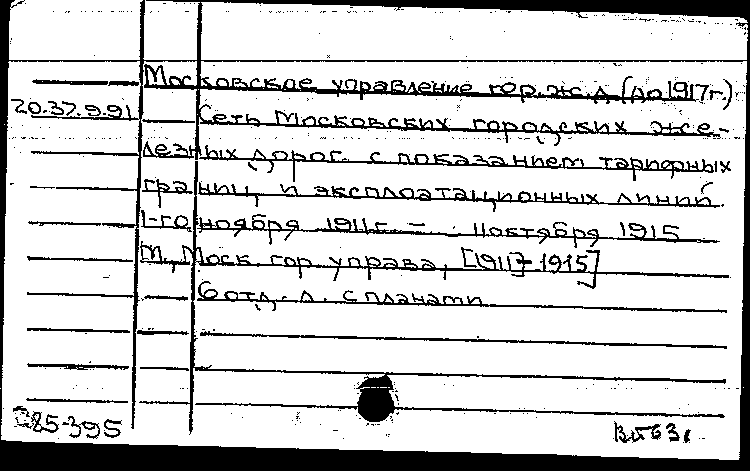 Московское управление гор. ж. д. (до 1917 г.)
20.37.9.91
Сеть Московских городских желе-
лезных дорог с показанием тарифных
границ и эксплоатационных линий
1-го ноября 1911 г. – 1 октября 1915
М., Моск. гор. управа, [1911]-1915]
6 отд. л. с планами
85-395